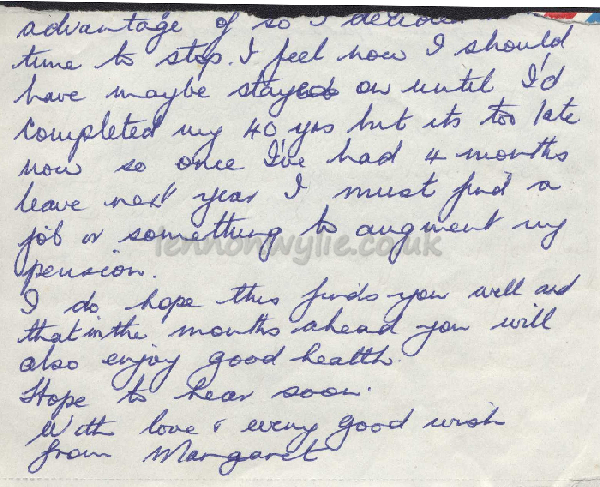 advantage of so I decided
time to stop. I feel now I should
have maybe stayed on until I'd
completed my 40 yrs but its too late
now so once I've had 4 months
leave next year I must find a
job or something to augment my
pension.
lennonwylie.co.uk
I do hope this finds you well and
that in the months ahead you will
also enjoy good health.
Hope to hear soon.
With love & every good wish
from Margaret